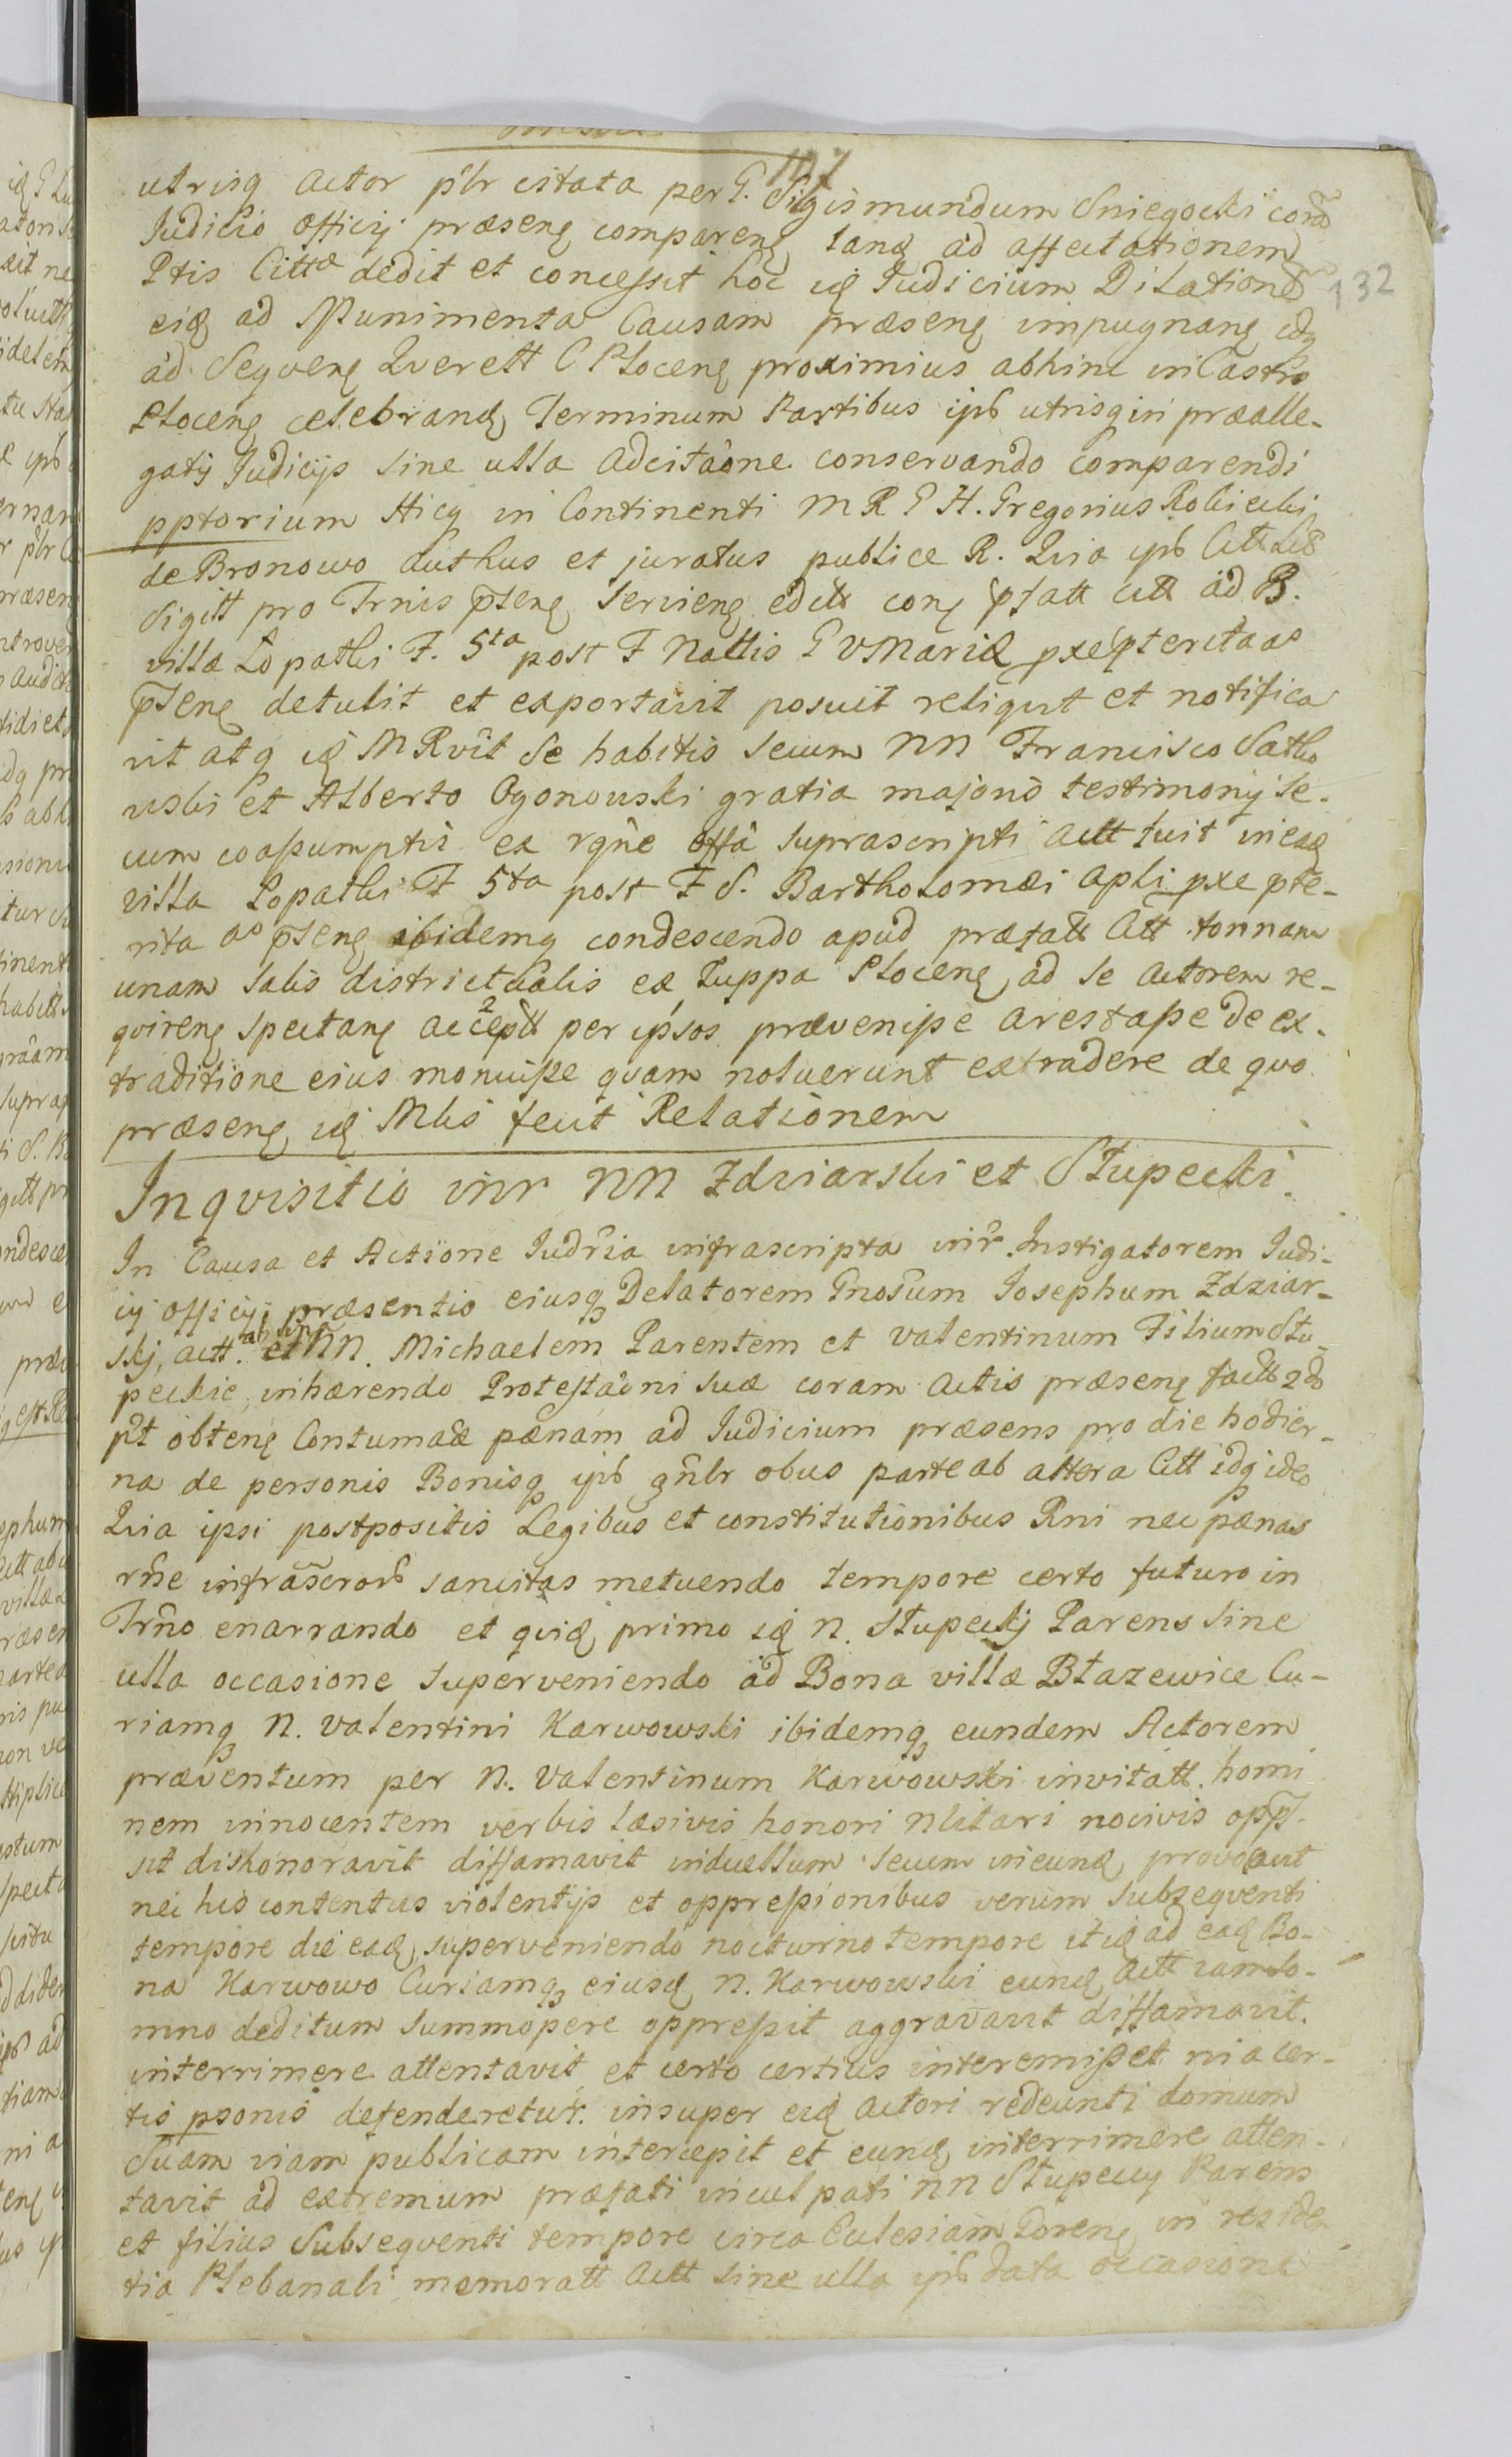 107
132
utrisq actor pñlr citata per G. Sigismundum Sniegocki corã
Judicio Officij præsenę comparenę tanđ ad affectationem
Ptis Cittæ dedit et concessit hoc iđ Judicium Dilationẽ
eiđ ad Munimenta Causam præsenę impugnanę idq
ad Seqvenę Qverell C Plocenę proximius abhinc in Castro
Plocenę celebranđ Terminum Partibus ipß utrisq in prealle-
gatij Judicijs sine ulla adcitaône conservando comparendi
pptorium Hicq in Continenti M R G H. Gregorius Robiecki
de Bronowo Authus et juratus publice R. Qvia ipß Citt Lis
Sigill pro Trnis p̃senę servienę edicts conę p̃fatt citt ad B.
villæ Lopatki F. 5ta post F Nattis G V Mariæ pxe pteritaao
p̃senę detulit et exportavit posuit reliqvit et notifica
vit atq iđ M Rvit Se habitis secum NN Francisco Satko
wski et Alberto Ogonowski gratia majoris testimonij se-
cum coassumptis ex rqñe offa suprascripti Actt fuit in eađ
villa Lopatki F 5ta post F S. Bartholomæi Apli pxe pte-
rita ao p̃senę ibidemq condescendo apud præfatt Citt tonnam
unam salis districtualis ex Zuppa Plocenę ad se Actorem re-
qvirenę spectanę accept per ipsos prævenisse arestasse de ex-
traditione eius monuisse qvam noluerunt extradere de qvo
præsenę iđ Mlis fecit Relationem
Inqvisitio inr NN Zdziarski et Słupecki.
In Causa et Actione Judr̃ia infrascripta inr̃. Instigatorem Judi-
cij officij præsentis eiusq Delatorem Gnosum Josephum Zdziar-
skj, actt. ab una et NN. Michaelem Parentem et Valentinum Filium Słu-
peckie, inhærendo Protestaôni suæ coram Actis præsenę factæ 2do
pt obtenę Contumacæ pænam ad Judicium præsens pro die hodier-
na de personis Bonisq ipß gñlr obus parte ab altera Citt idq ideo
Qvia ipsi postpositis Legibus et constitutionibus Rni nec pænas
rñe infrãscror̃ sancitas metuendo tempore certo futuro in
Trño enarrando et qviđ primo iđ N. Słupeckj Parens sine
ulla occasione superveniendo ad Bona villæ Błazewice Cu-
riamq N. Valentini Karwowski ibidemq eundem Actorem
præventum per N. Valentinum Karwowski invitatt. homi
nem innocentem verbis læsivis honori Nlitari nocivis opp̃-
sit dishonoravit diffamavit induellum secum in eunđ provocavit
nec his contentus violentijs et oppressionibus verum subseqventi
tempore die eađ superveniendo nocturno tempore it iđ ad eađ Bo-
na Karwowo Curiamq eiusđ N. Karwowski eunđ Actt iam so-
mno deditum summopere oppressit aggravavit diffamavit.
interrimere attentavit et certo certius interemisset ni a cer-
tis psonis defenderetur. insuper eiđ Actori redeunti domum
Suam viam publicam intercepit et eunđ interrimere atten-
tavit ad extremum præfati inculpati NN Słupeccy Parens
et filius Subseqventi tempore circa Eclesiam Gorenę in residen
tia Plebanali memoratt Actt sine ulla ipß data occasione